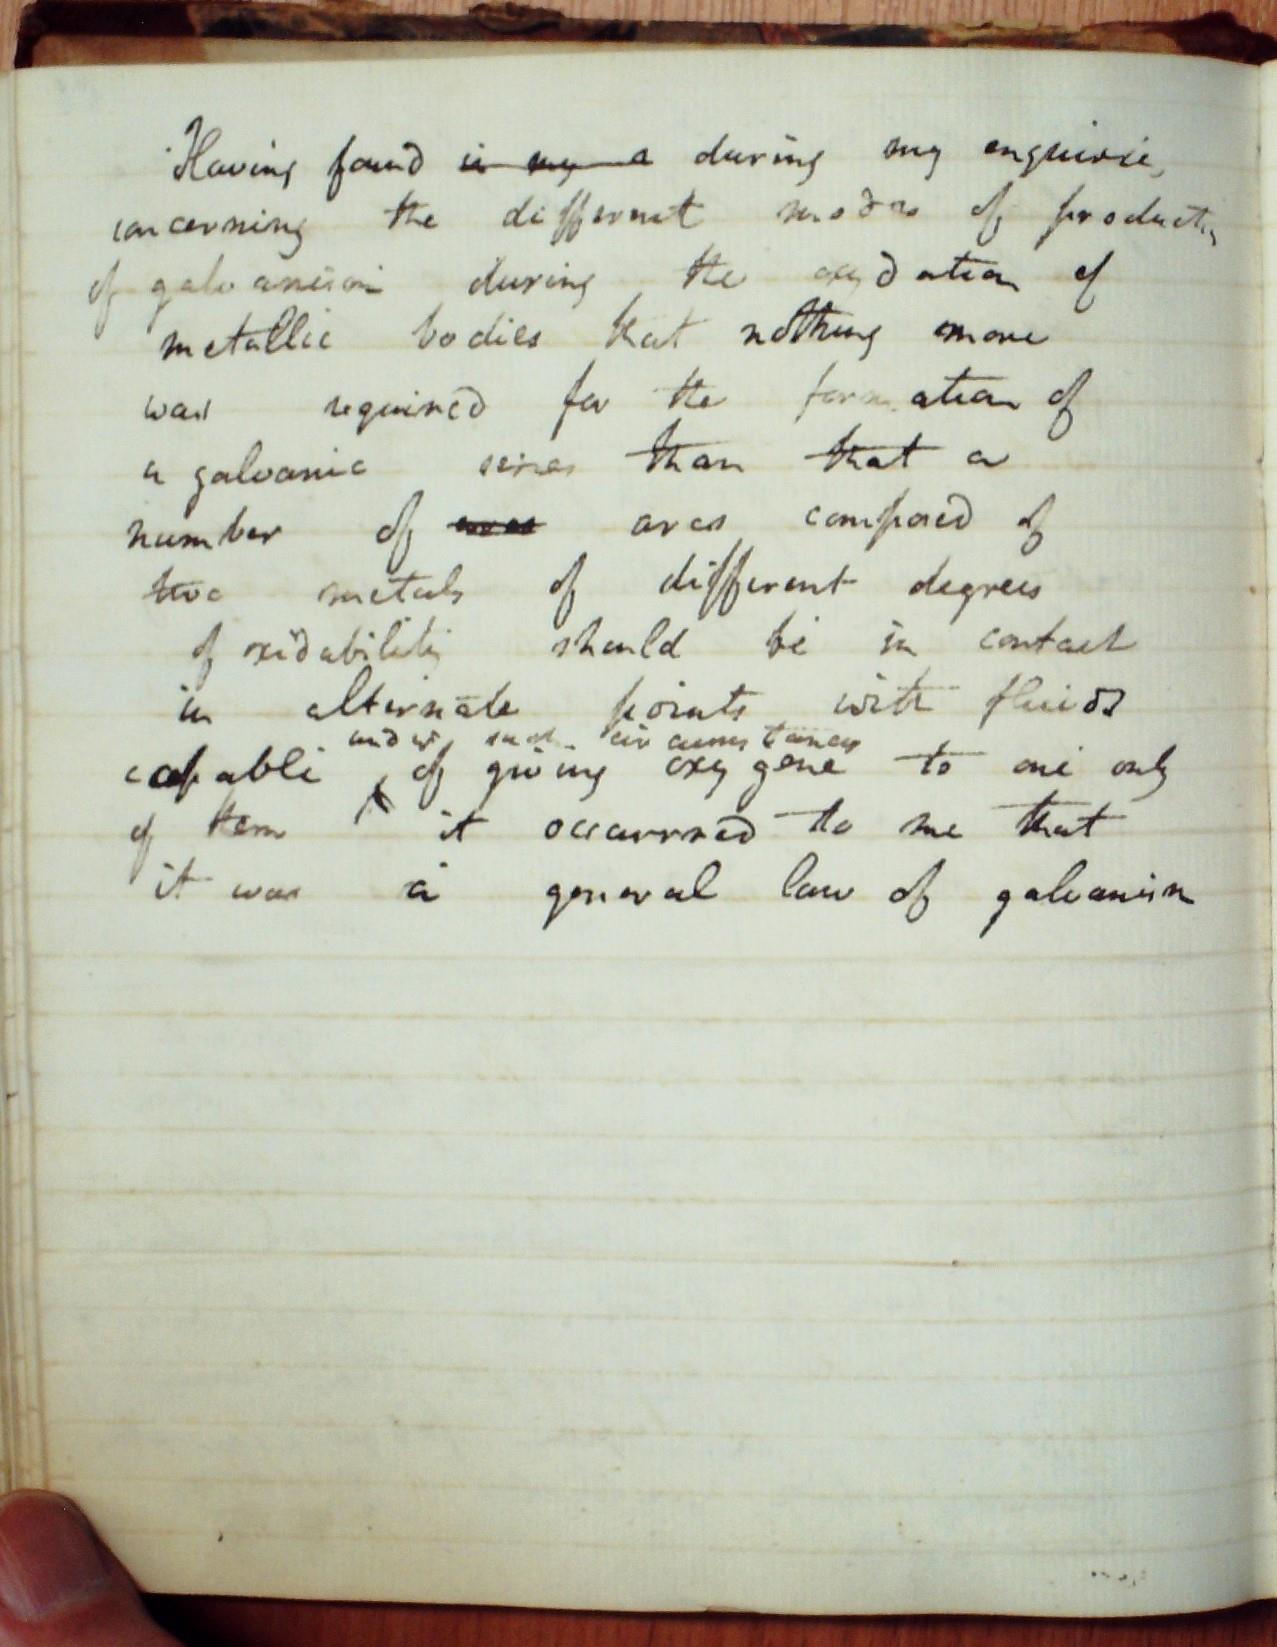 Having found in my a during my enquirie,
concerning the different modes of production
of galvanism during the oxydation of
metallic bodies that nothing more
was required for the formation of
a galvanic series than that a
number of arcs composed of
two metals of different degrees
of oxidability should be in contact
in alternate points with fluids
under such circumstances
capable of giving oxygene to one only
of them it occurred to me that
it was a general law of galvanism